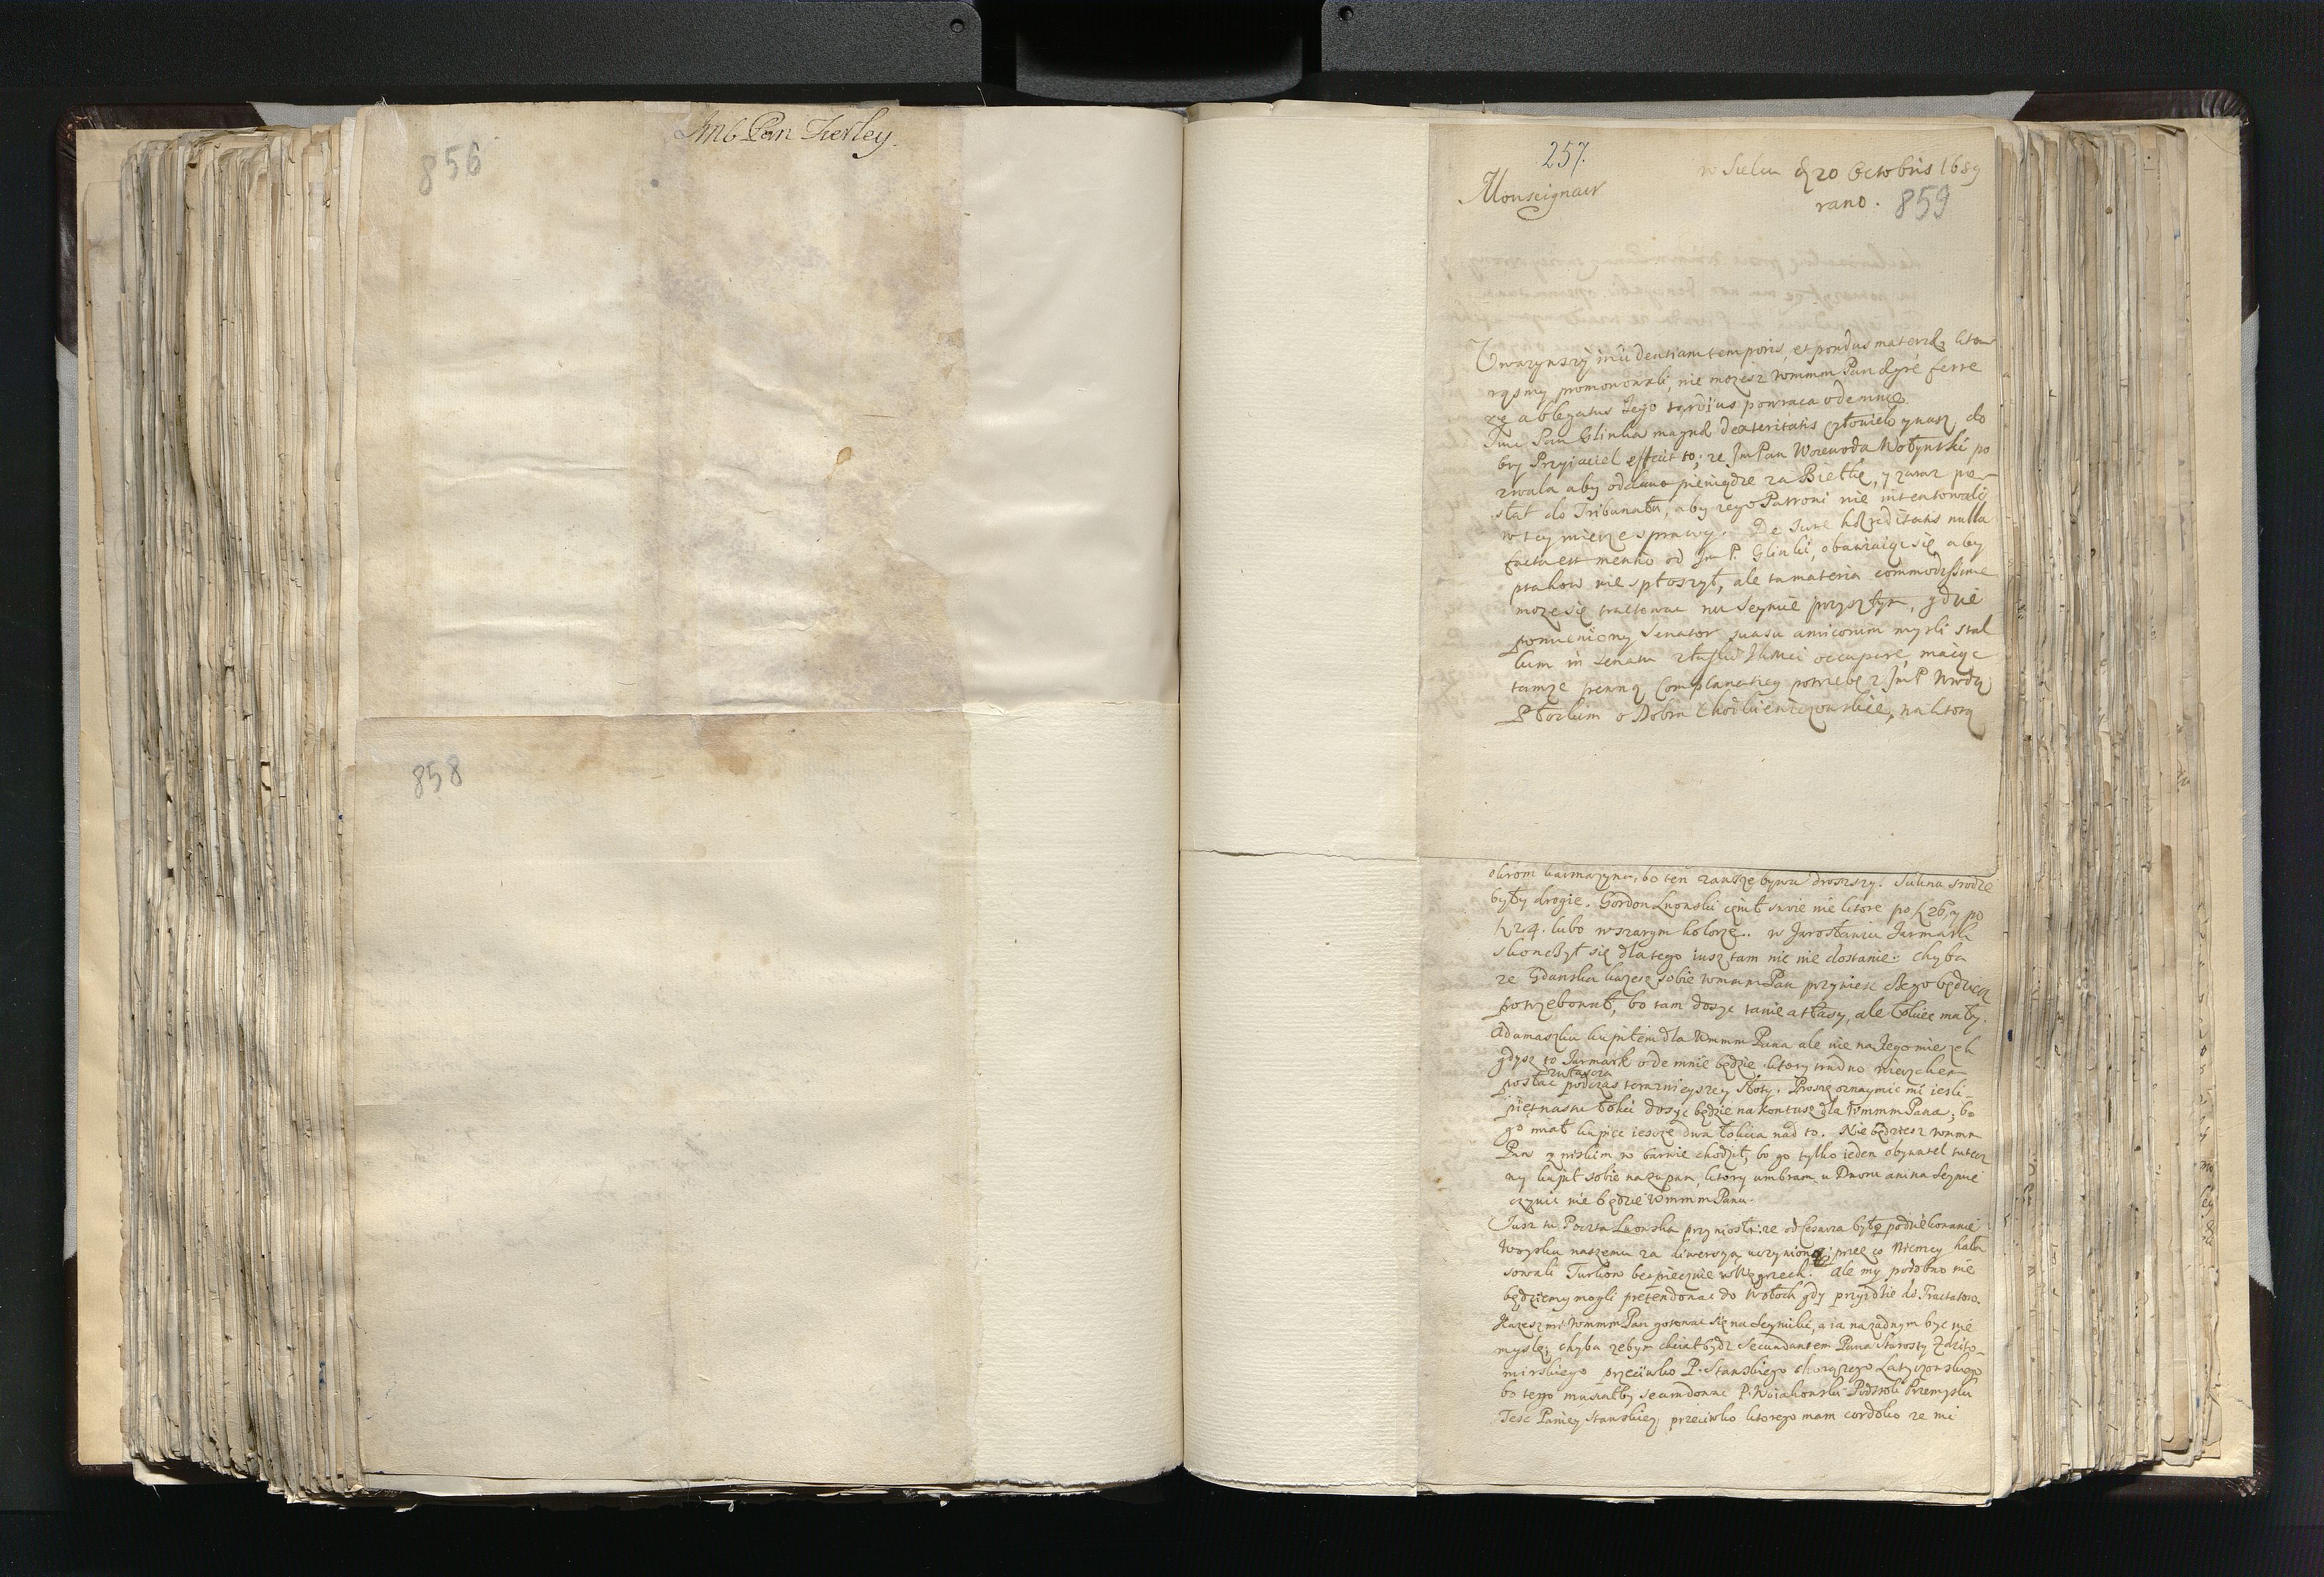 856
Jmć Pan Firley.
858
257.
w Sielcu d 20 Octobris 1689
Monseigneur
rano. 859
Uwazywszy inudentiam temporis, et pondus materiæ kto
rąsmy promowowali, nie mozesz wmmm Pan ægré ferre
ze ablegatus Jego tardius powraca odemnie.
Jmć Pan Glinka magnæ dexteritatis człowiek y nasz do
bry Przyiaciel effecit to; ze Jm Pan Woiewoda Wołynski po
zwala aby oddano pieniądze za Biełkę, y zaraz po
słał do Tribunału, aby jego Patroni nie intentowali
w tey mierze sprawy. De Jure hæreditatis nulla
facta est mentio od Jm P. Glinki, obawiaiąc się aby
ptakow nie spłoszył, ale ta materia commodissime
moze się tractowac na Seymie przyszłym, gdzie
pomieniony Senator suasu amicorum mysli stal
lum in senatu z łaski Jkmci occupare, maiąc
tamze pewną complanatiey potrzebę z Jm P Wwdą
Płockim o Dobra Chodkiewiczowskie, na ktorą
okrom karmazynu, bo ten zawsze bywa drozszy. Sukna srodze
były drogie. Gordon Lwowski cenił swoie nie ktore po f 26, y po
f 24. lubo w szarym kolorze. w Jarosławiu Jarmark
skonczył się dla tego iusz tam nic nie dostanie: chyba
ze Gdanska kazesz sobie wmmm Pan przyniesc czego będziesz
potrzebował, bo tam dosyc tanie atłasy, ale łokiec mały.
Adamaszku kupiłem dla Wmmm Pana ale nie na Jegomieszek
gdysz to Jarmark odemnie będzie ktory trudno wierzchem
posłac podczas teraznieyszey słoty. Proszę oznaymic mi iesli
piętnastu łokci dosyc będzie na kontusz dla Wmmm Pana; bo
go miał kupiec ieszcze dwa łokcia nad to. Nie będziesz wmmm
Pan z niskim w barwie chodził, bo go tylko ieden obywatel tutecz
ny kupił sobie na zupan, ktory umbram u Dworu ani na Seymie
czynic nie będzie Wmmm Panu.
Jusz tu Poczta Lwowska przyniosła: ze od Cesarza było podziękowanie
Woysku naszemu za diwersyą uczynioną; przez co Niemcy hała
sowali Turkow bespiecznie w Węgrzech. Ale my podobno nie
będziemy mogli pretendowac do Wołoch gdy przyidzie do Tractatow.
Kazesz mi Wmmm Pan gotowac się na Seymiki, a ia na zadnym byc nie
myslę; chyba zebym chciał bydz Secundantem Pana Starosty Zdzito-
mirskiego przeciwko P. Stawskiego chorązego Latyczowskiego
bo tego musiałby secundowac P. Woiakowski Podstoli Przemyski
Tesc Paniey Stawskiey; przeciwko ktorego mam cordoko ze mi